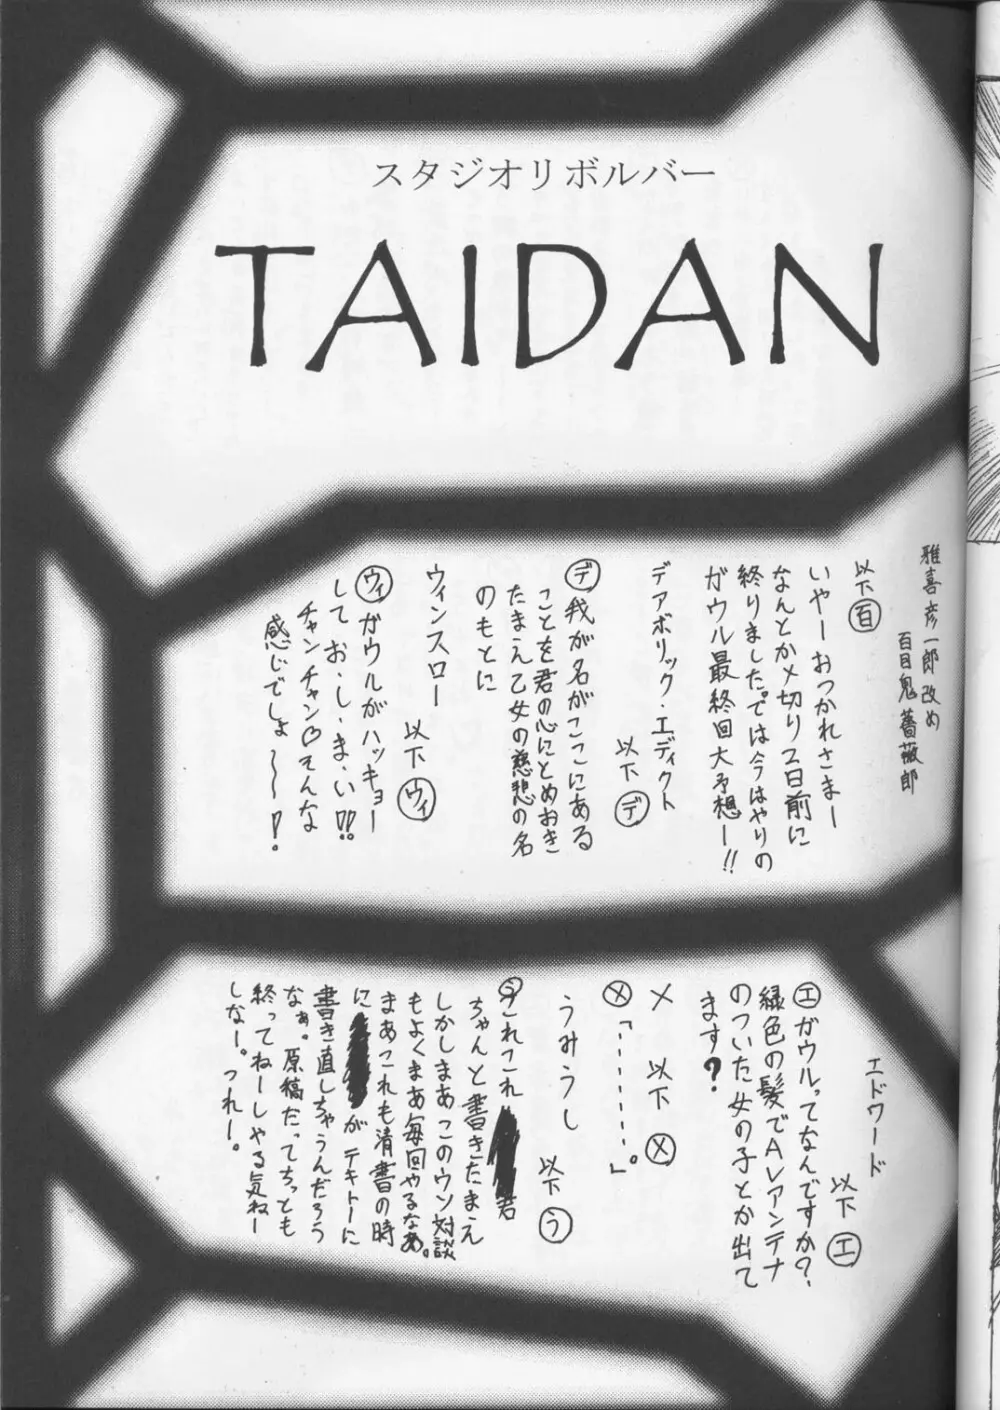 スタジオリボルバー
TAIDAN
雅喜彦一郎改め
百目鬼薔薇郎
以下百
いやーおつかれさまー
なんとか〆切り2日前に
終りました。では今はやりの
ガウル最終回大予想ー!!
デアボリック・エディクト
以下デ
デ我が名がここにある
ことを君の心にとめおき
たまえ乙女の慈悲の名
のもとに
ウィンスロー
以下ウィ
ウィガウルがハッキョー
して お・し・ま・い!!
チャンチャン♡そんな
感じでしょ〜〜!。
エドワード
以下エ
エガウルってなんですか?
緑色の髪でAレアンテナ
のついた女の子とか出て
ます?
メ 以下メ
メ「・・・・・・・・。」
うみうし
以下う
うこれこれ 君
ちゃんと書きたまえ
しかしまあこのウソ対談
もよくまあ毎回やるなあ。
まあこれも清書の時
に が テキトーに
書き直しちゃうんだろう
なぁ。原稿だってちっとも
終ってねーしやる気ねー
しなー。つれー。